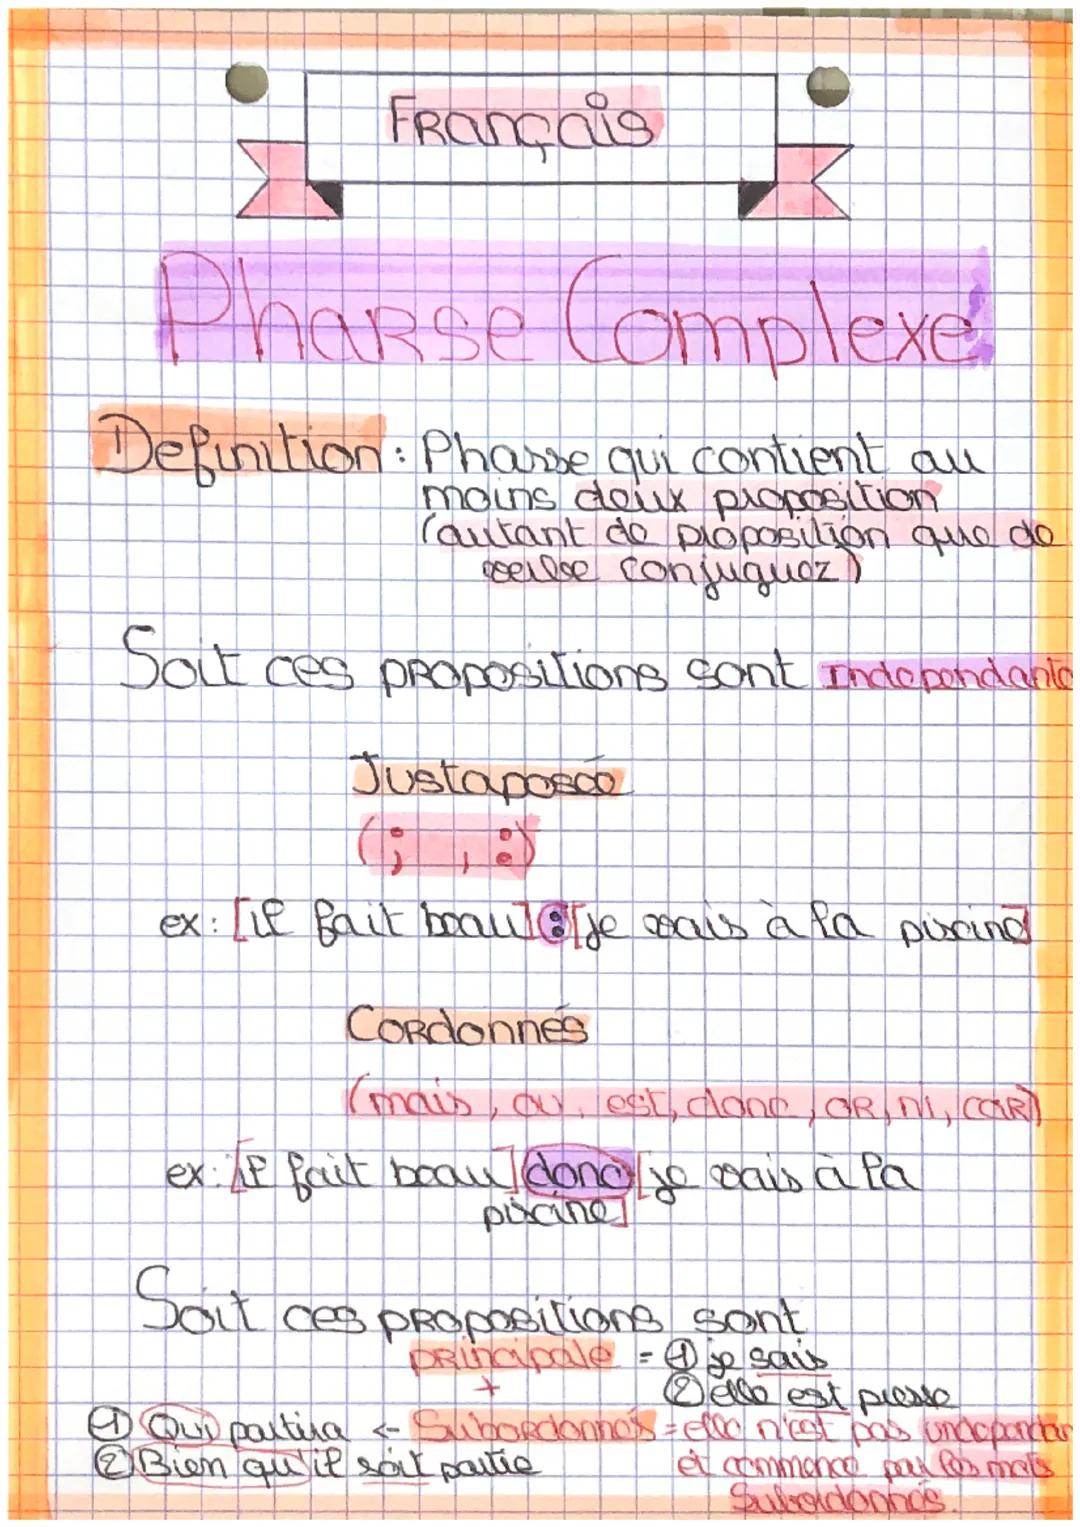 Français
Pharse Complexe
Definition : Pharse qui contient au
moins deux proposition
(autant de proposition que de
verbe conjuguez)
Soit ces propositions sont Independante
Justaposée
(; , :)
ex : [il fait beau] : [je vais à la piscine]
Cordonnés
(mais, ou, est, donc, or, ni, car)
ex : [il fait beau] donc [je vais à la
piscine]
Soit ces propositions sont
principale = ① je sais
+ ② elle est presse
① Qui partira <- Subordonnés = elle n'est pas independan
② Bien qu'il soit partie et commence par les mots
Subordonnés.